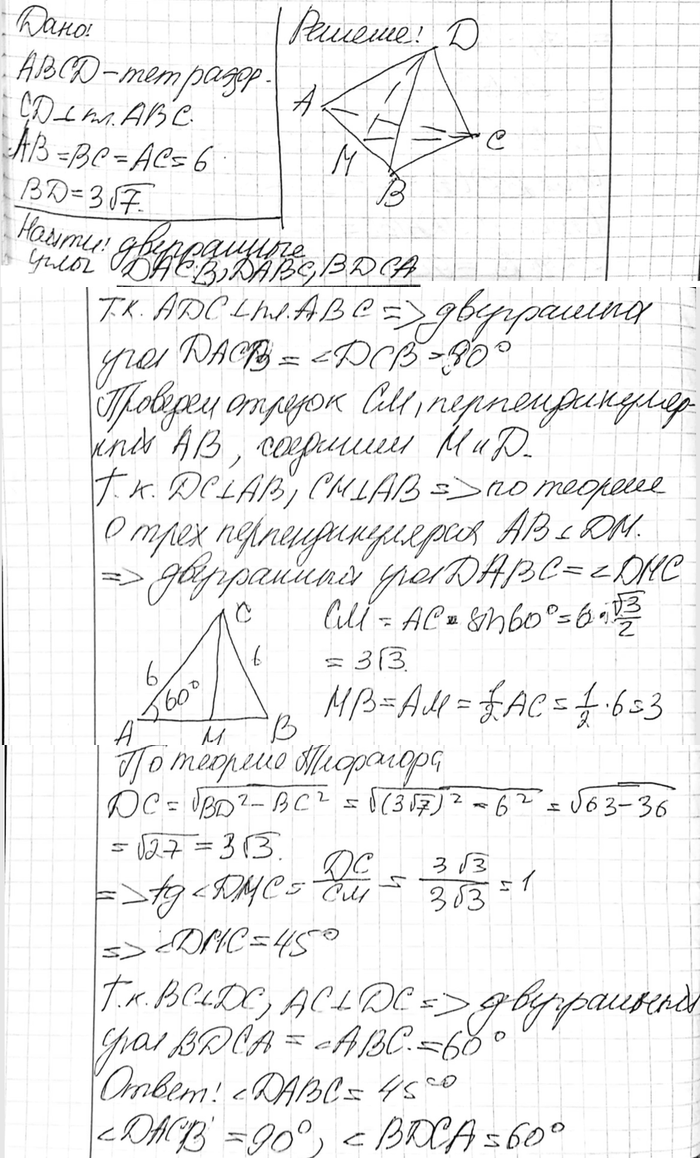 Дано:
ABCD – тетраэдр.
CD⊥пл. ABC.
AB = BC = AC = 6
BD = 3√7.
Найти: двугранные
углы DACB, DABC, BDCA
Решение:
D
A
C
M
B
Т.к. ADC⊥пл. ABC => двугранный
угол DACB = ∠DCB = 90°
Проведем отрезок CM, перпендикуляр-
ный AB, соединим M и D.
Т.к. DC⊥AB, CM⊥AB => по теореме
о трех перпендикулярах AB⊥DM.
=> двугранный угол DABC = ∠DMC
C
6
6
60°
A M B
CM = AC · sin60° = 6 · √3/2
= 3√3.
MB = AM = 1/2 AC = 1/2 · 6 = 3
По теореме Пифагора
DC = √(BD² – BC²) = √((3√7)² – 6²) = √(63 – 36)
= √27 = 3√3.
=> tg ∠DMC = DC/CM = 3√3/3√3 = 1
=> ∠DMC = 45°
Т.к. BC⊥DC, AC⊥DC => двугранный
угол BDCA = ∠ABC. = 60°
Ответ: ∠DABC = 45°
∠DACB = 90°, ∠BDCA = 60°